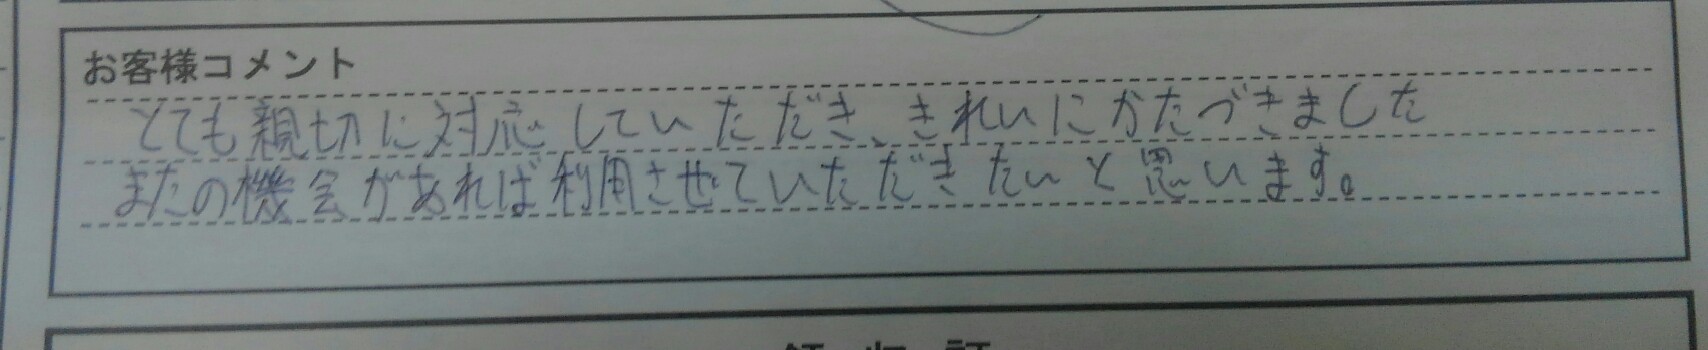 お客様コメント
とても親切に対応していただき、きれいにかたづきました
またの機会があれば利用させていただきたいと思います。